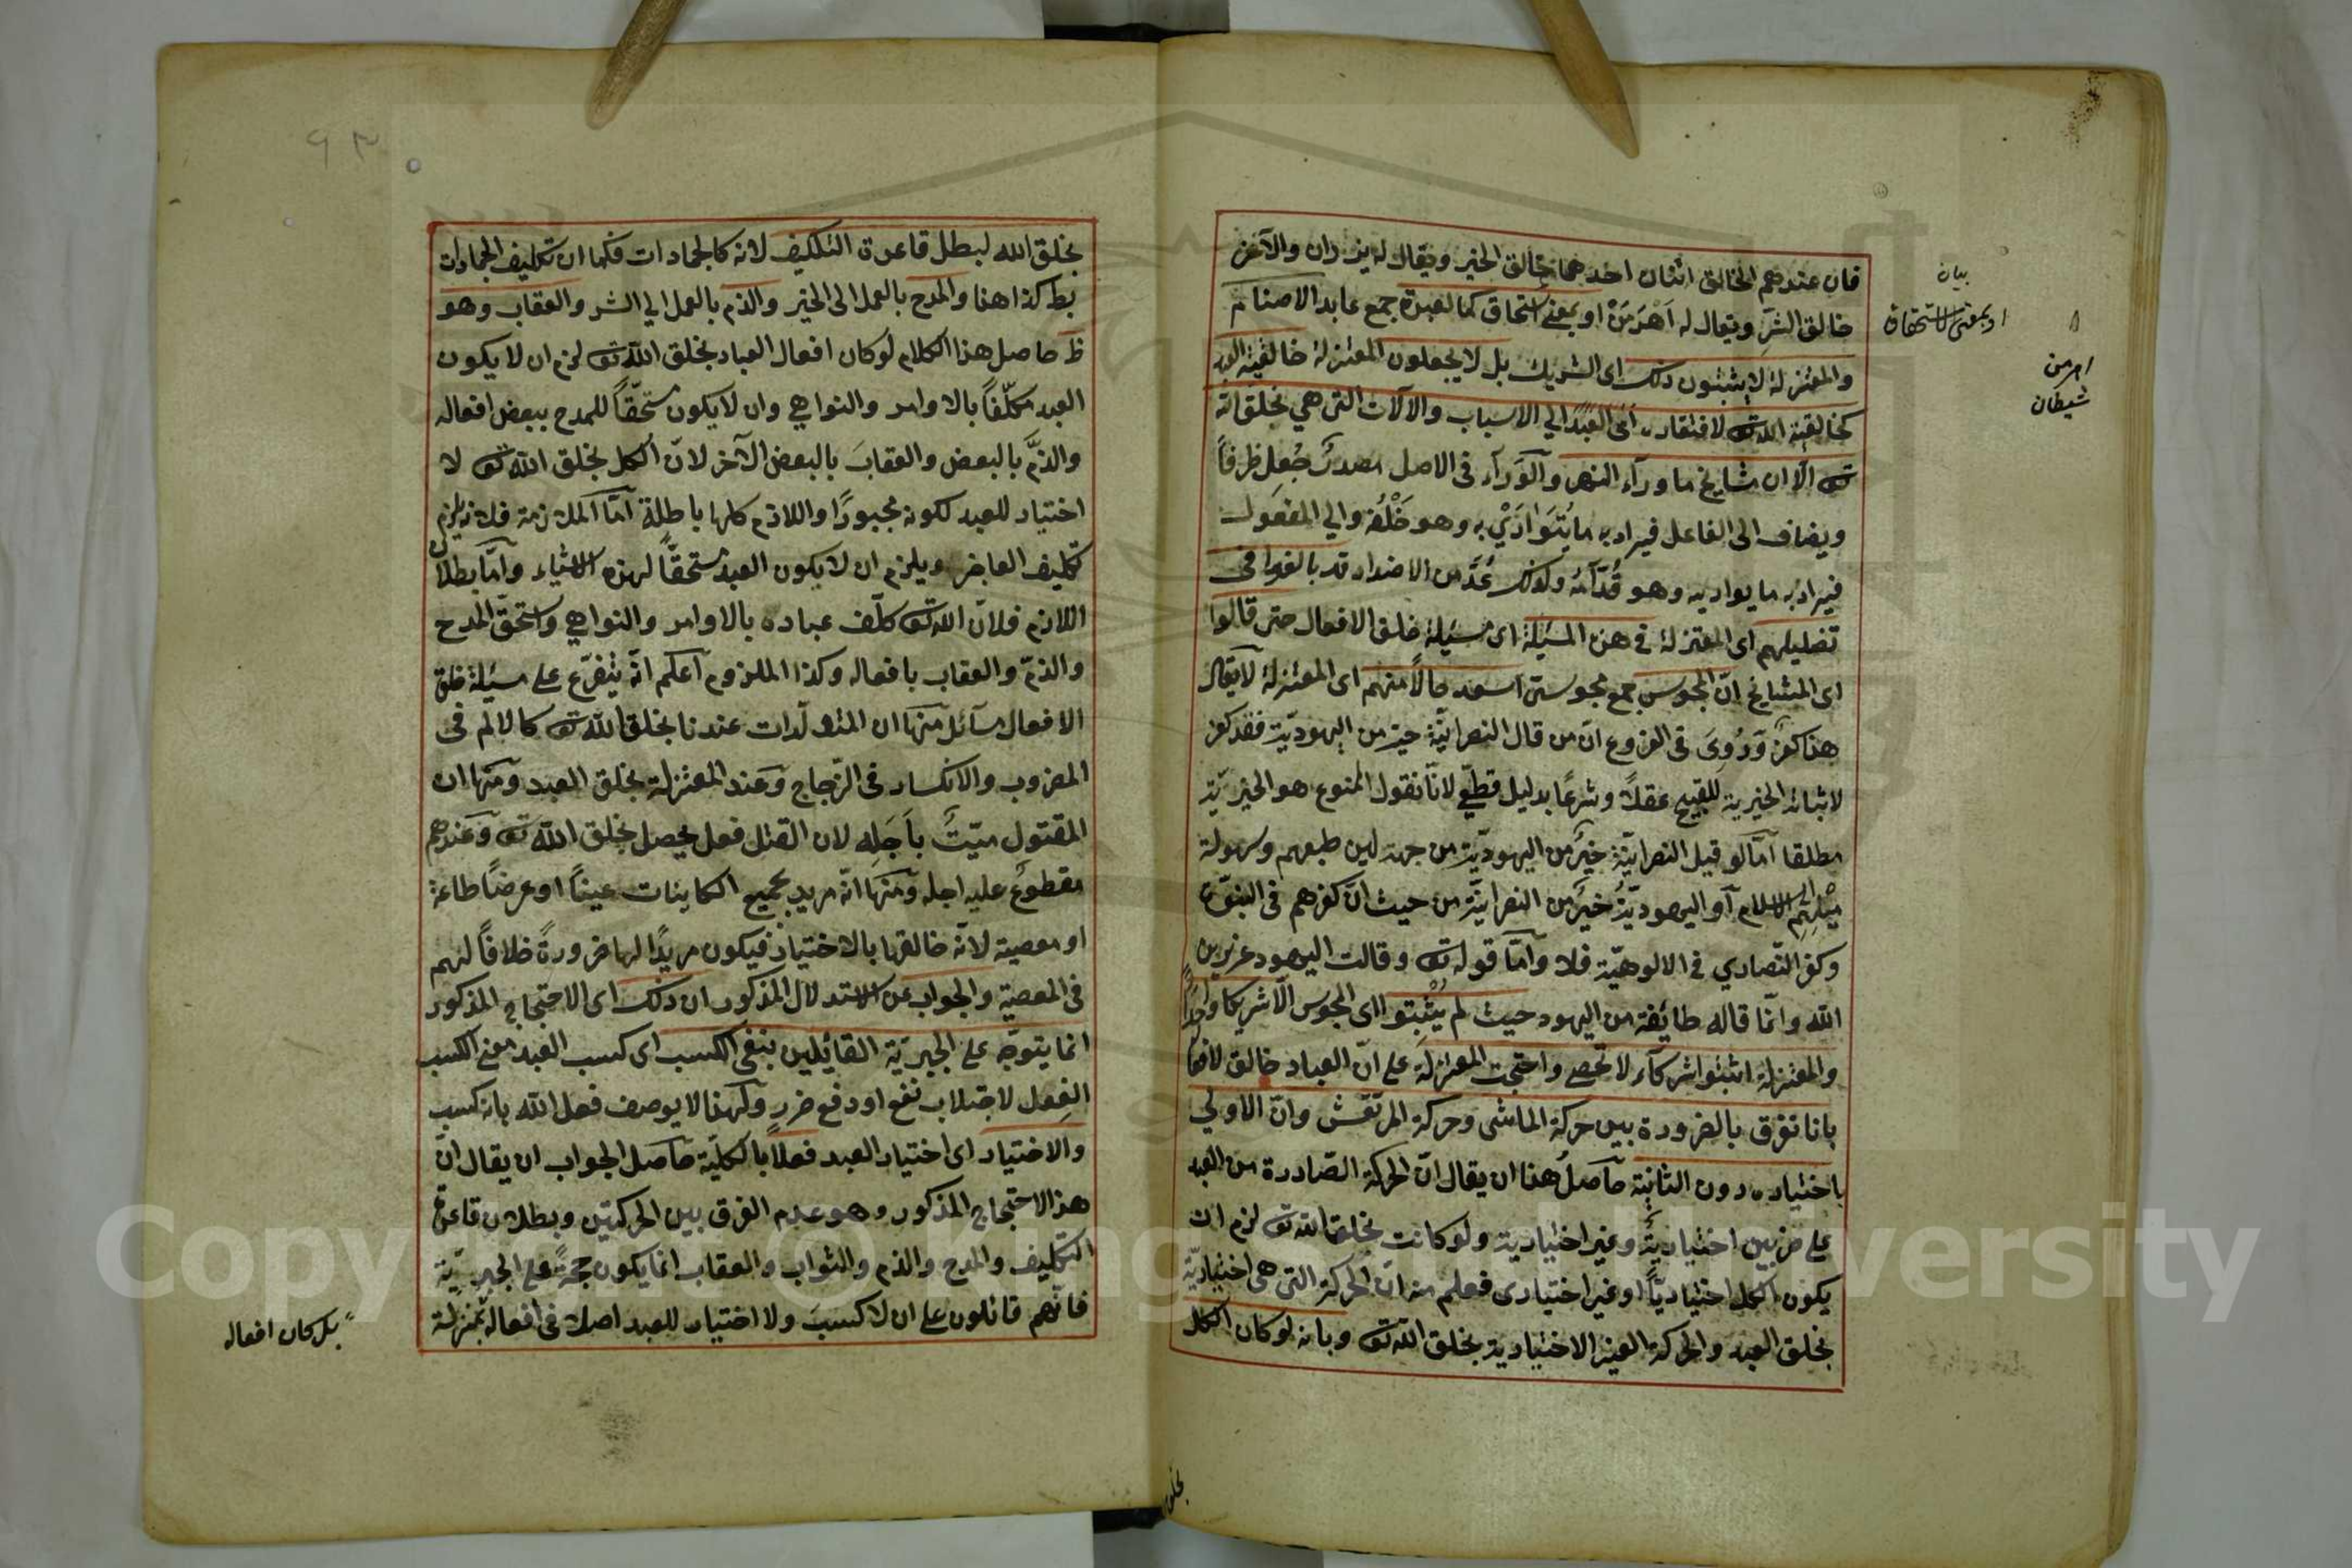 فان عندهم الخالق اثنان احدهما خالق الخير ويقال له يزدان والآخر
خالق الشر ويقال له اَهْرَمَنْ او بمعنى استحقاق كما لعبدة جمع عابد الاصنام
والمعتزلة لا يثبتون ذلك اى الشريك بل لا يجعلون المعتزلة خالقية العبد
كخالقية الله تعـ لافتقاره اى العبد الي الاسباب والآلات التى هي بخلق الله
تعـ الا ان مشايخ ما ورآء النهر والوَرآء فى الاصل مصدرٌ جُعِل ظرفاً
ويضاف الى الفاعل فيراد به ما يُتَوَارَيْ به وهو خَلْفُه والي المفعول
فيراد به ما يواريه وهو قُدّامُه ولذلك عُدَّ من الاضداد قد بالغوا فى
تضليلهم اى المعتزلة فى هذه المسئلة اى مسئلة خلق الافعال حتى قالوا
اى المشايخ انّ المجوس جمع مجوسىّ اسعد حالاً منهم اى المعتزلة لا يقال
هذا كفرٌ ورُوِىَ فى الفروع انّ من قال النصرانيّة خير من اليهوديّة فقد كفر
لاثباته الخيرية للقبيح عقلاً وشرعًا بدليل قطعّي لانّا نقول الممنوع هو الخيريّة
مطلقا امّا لو قيل النصرانيّة خيرٌ من اليهوديّة من جهة لين طبعهم وسهولة
مَيْلِهِم الى الاسلام او اليهوديّةُ خيرٌ من النصرانيّة من حيث انّ كفرهم فى النبوّة
وكفر النّصارى فى الالوهيّة فلا وامّا قوله تعـ وقالت اليهود عزير بن
الله وانّما قاله طائفة من اليهود حيث لم يُثْبِتوا اى المجوس الّا شريكا واحداً
والمعتزلة اثبتوا شركآء لا تحصى واحتجت المعتزلة على انّ العباد خالق لافعا
بانا نفرق بالضرورة بين حركة الماشى وحركة المرتعش وانّ الاولي
باختياره دون الثانية حاصلُ هذا ان يقال انّ الحركة الصّادرة من العبد
على ضربين اختياريةٌ وغير اختيارية ولو كانت بخلق الله تعـ لزم ان
يكون الكل اختياريّاً او غير اختيارى فعلم منه انّ الحركة التى هى اختياريّة
بخلق العبد والحركة الغير الاختيارية بخلق الله تعـ وبانه لو كان الكل
بيان
او بمعنى الاستحقاق
اهرمن
شيطان
بخلق
بخلق الله لبطل قاعدة التكليف لانه كالجمادات فكما ان تكليف الجمادات
بط كذا هنا والمدح بالعمل الى الخير والذم بالعمل الي الشر والعقاب وهو
ظ حاصل هذا الكلام لو كان افعال العباد بخلق الله تعـ لزم ان لا يكون
العبد مكلّفاً بالاوامر والنواهي وان لا يكون مستحقّاً للمدح ببعض افعاله
والذَّمَّ بالبعض والعقابَ بالبعض الآخر لانّ الكل بخلق الله تعـ لا
اختيار للعبد لكونه مجبورًا واللازم كلها باطلة امّا الملازمة فلانه يلزم
تكليف العاجز ويلزم ان لا يكون العبد مستحقًّا لهذه الاشياء وامّا بطلان
اللازم فلانّ الله تعـ كلّف عباده بالاوامر والنواهي واستحقّ المدح
والذمّ والعقاب بافعاله وكذا الملزوم اعلم انّه يتفرّع على مسئلة خلق
الافعال مسائل منها ان المتولّدات عندنا بخلق الله تعـ كالالم فى
المضروب والانكسار فى الزجاج وعند المعتزلة بخلق العبد ومنها ان
المقتول ميّتٌ باَجَلِه لان القتل فعل يحصل بخلق الله تعـ وعندهم
مقطوعٌ عليه اجله ومنها انّه مريد بجميع الكاينات عيناً او عرضاً طاعة
او معصية لانّه خالقها بالاختيار فيكون مريدًا لها ضرورةً خلافاً لهم
فى المعصية والجواب عن الاستدلال المذكور ان ذلك اى الاحتجاج المذكور
انما يتوجّه على الجبريّة القائيلين بنفى الكسب اى كسب العبد معنى الكسب
الفعل لاجتلاب نفع او دفع ضرر ولهذا لا يوصف فعل الله بانه كسب
والاختيار اى اختيار العبد فعلاً بالكليّة حاصل الجواب ان يقال انّ
هذا الاحتجاج المذكور وهو عدم الفرق بين الحركتين وبطلان قاعدة
التكليف والمدح والذم والثواب والعقاب انما يكون حجةً على الجبريّة
فانّهم قائلون على ان لا كسبَ ولا اختيار للعبد اصلا فى افعاله بمنزلة
بل كان افعاله
٩٣
Copyright © King Saud University